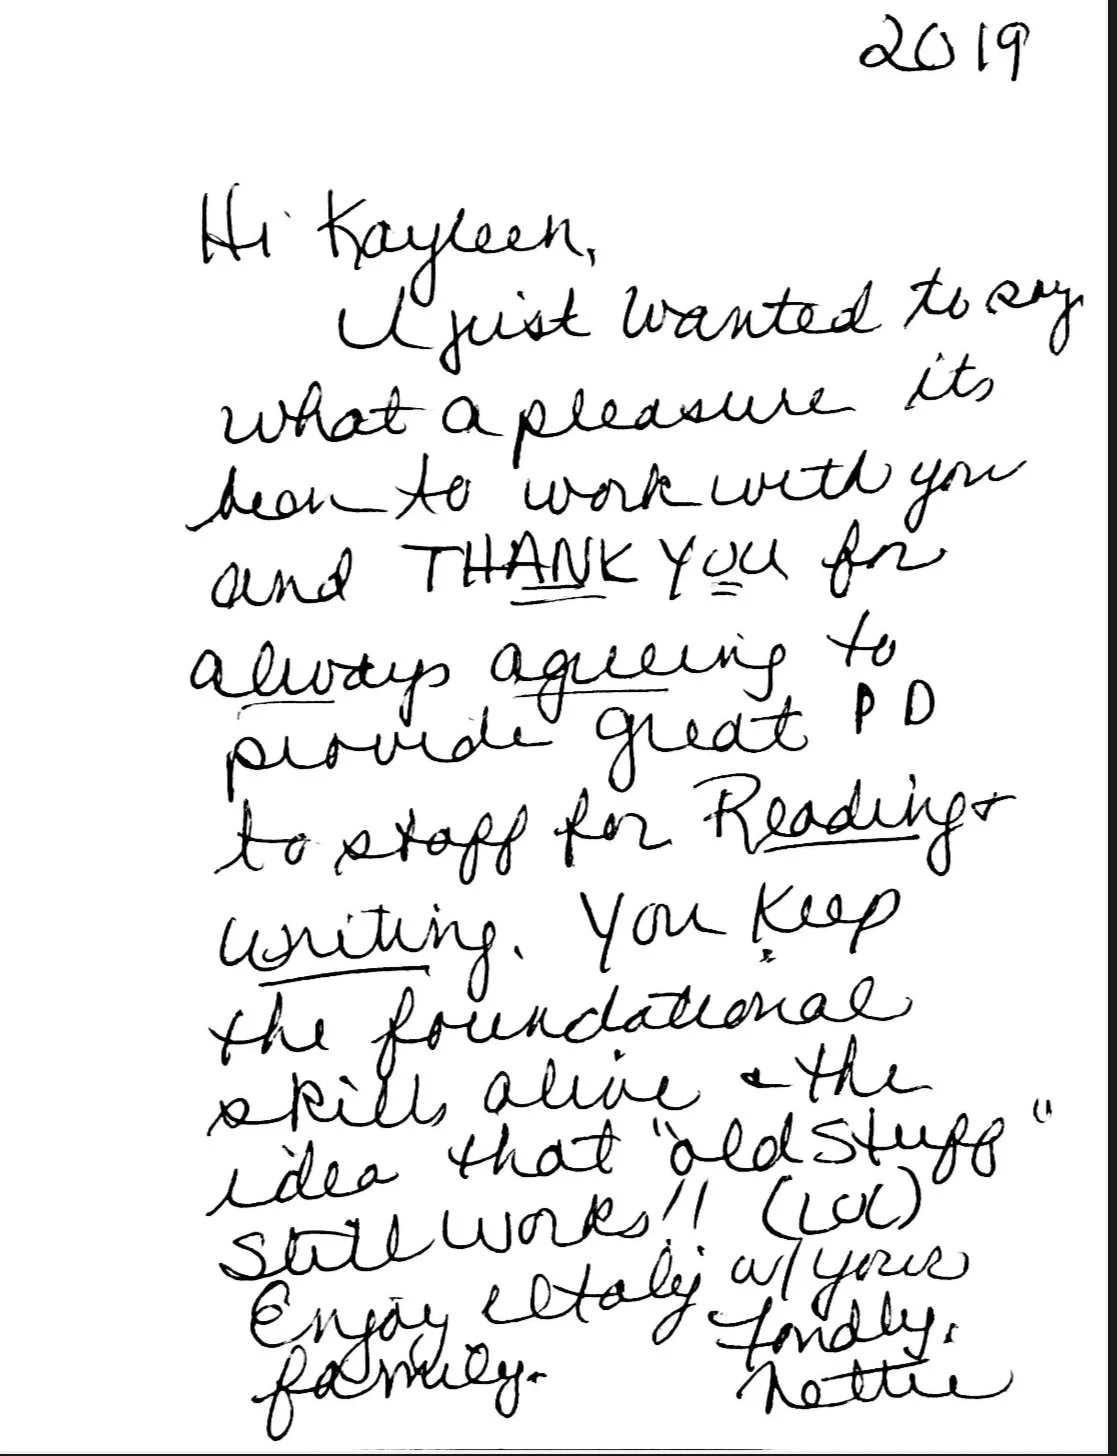 2019
Hi Kayleen,
I just wanted to say
what a pleasure its
been to work with you
and THANK YOU for
always agreeing to
provide great PD
to staff for Reading +
writing. You keep
the foundational
skills alive & the
idea that "old stuff"
still works!! (LOL)
Enjoy Italy w/ your
family. Fondly,
Nettie